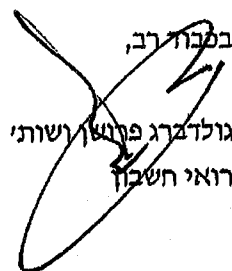 בכבוד רב,
גולדברג פרושן ושות'
רואי חשבון